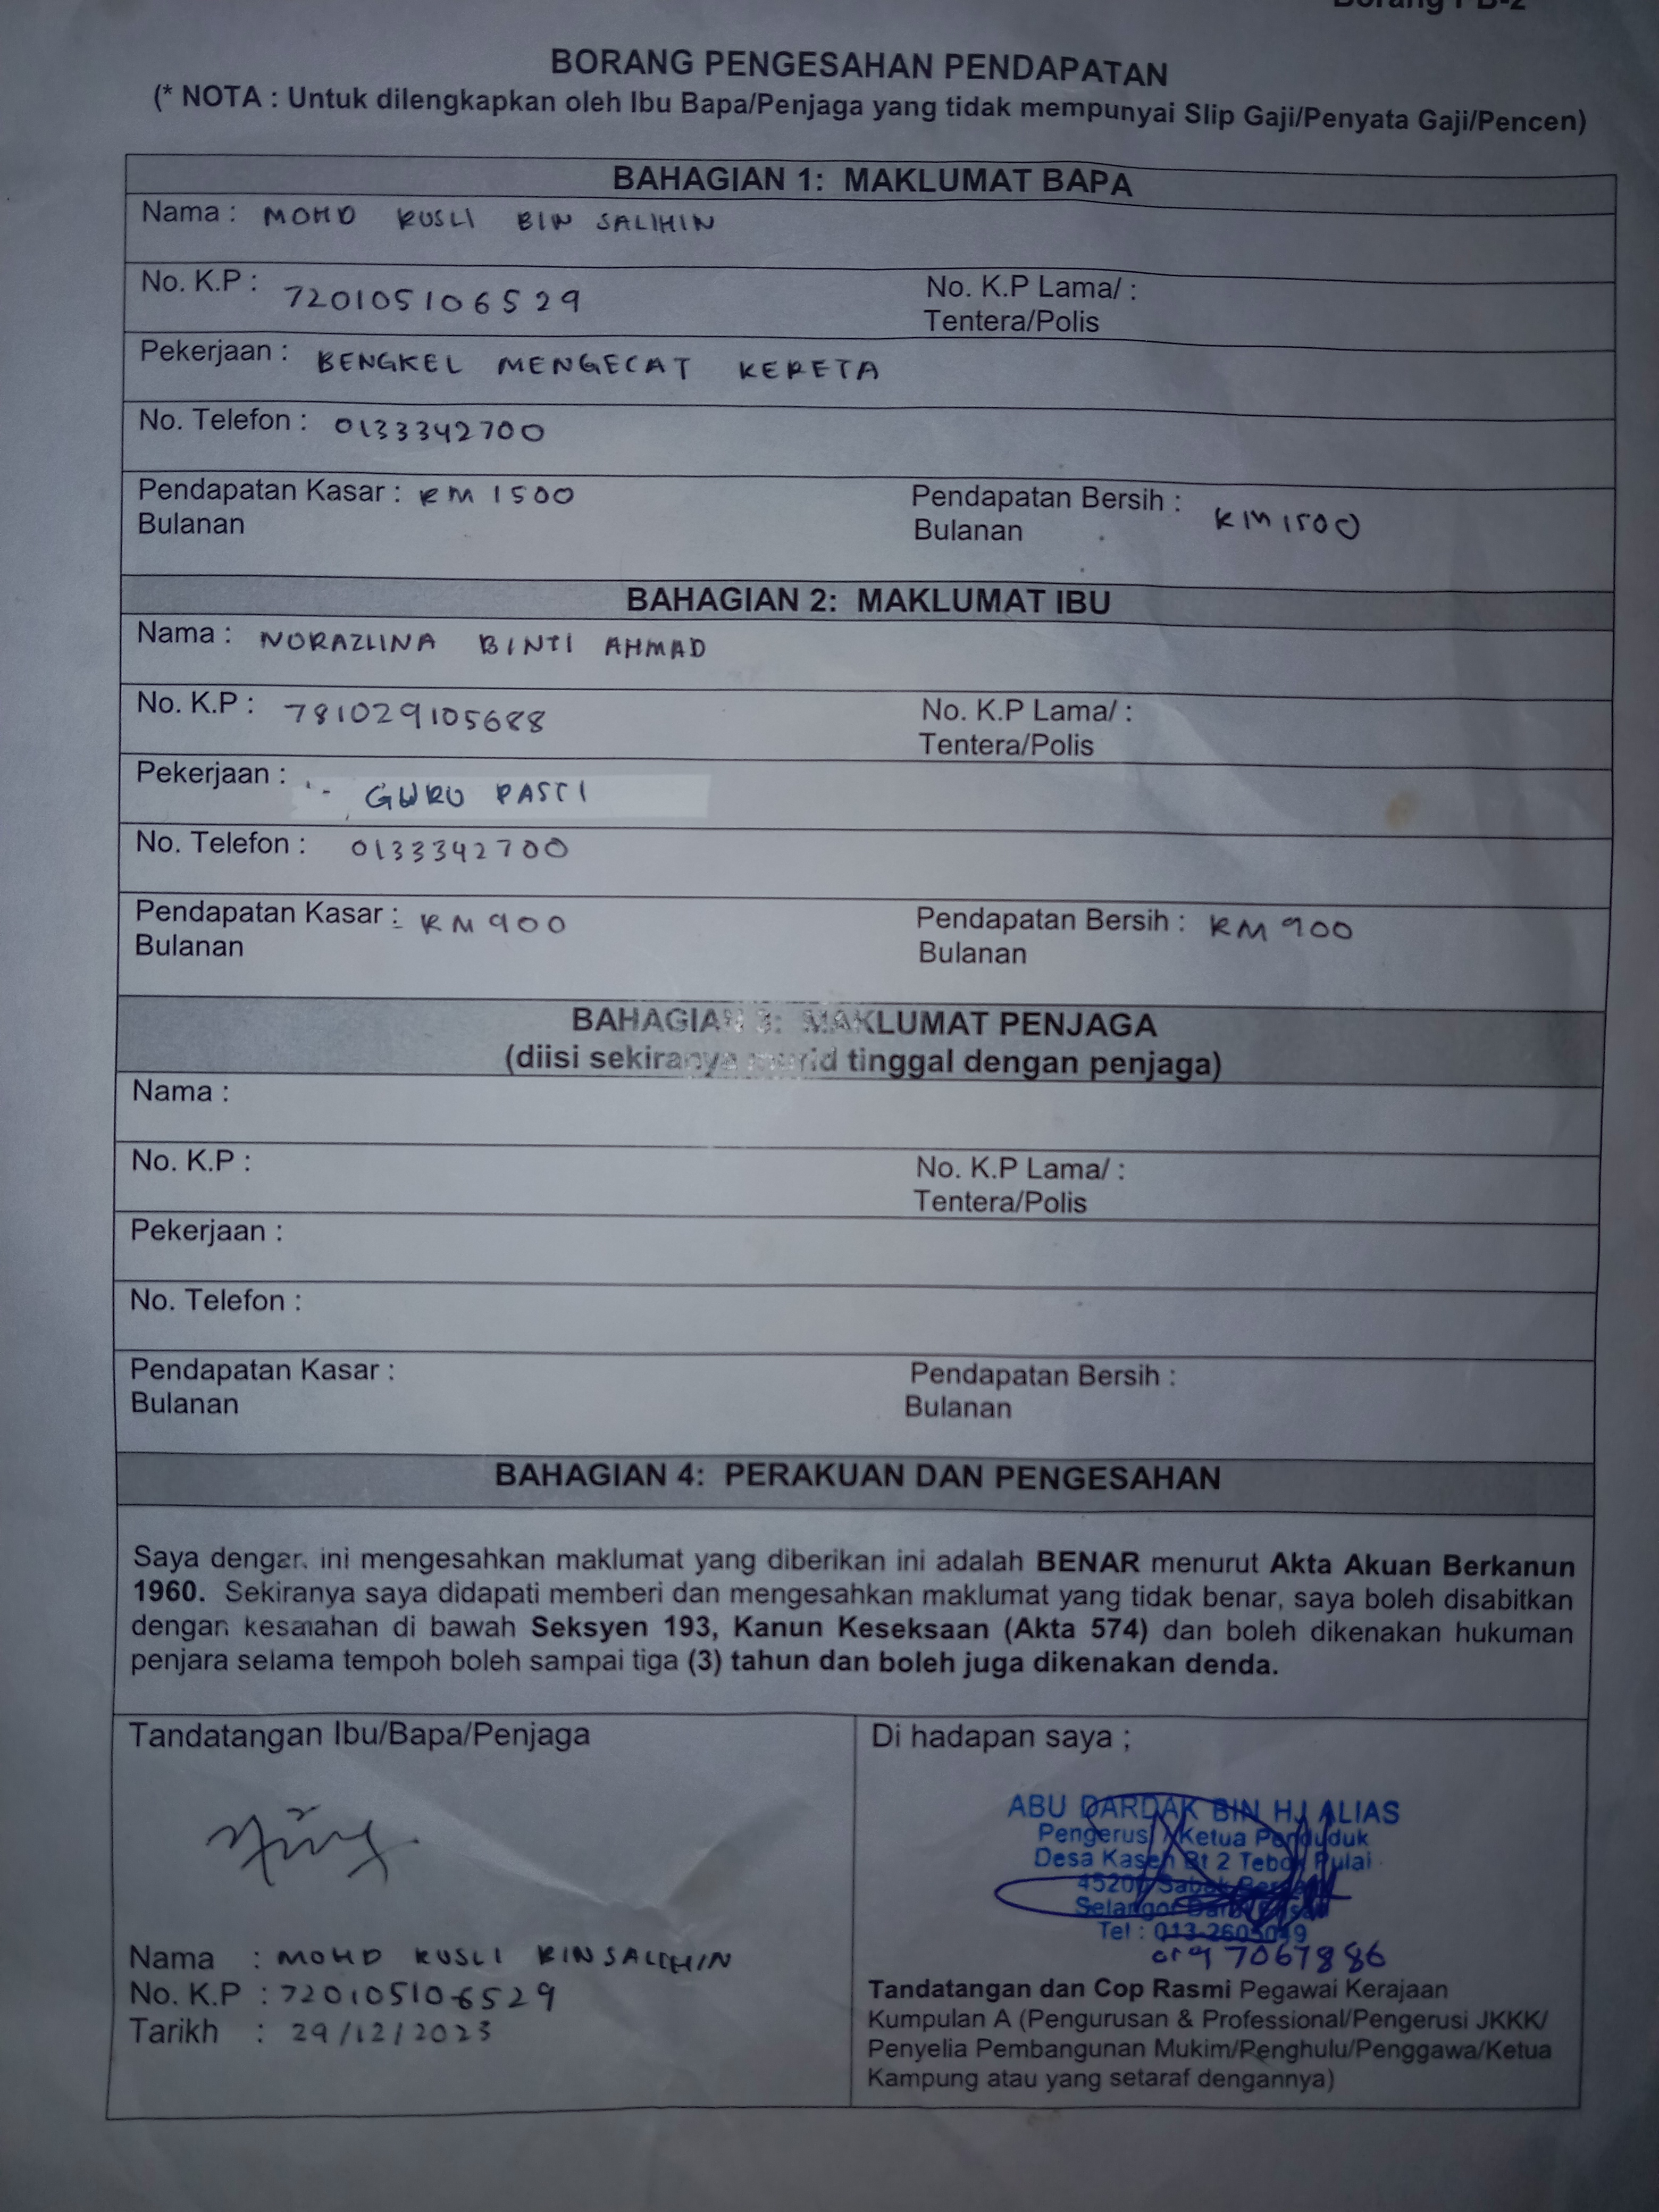 BORANG PENGESAHAN PENDAPATAN
(* NOTA : Untuk dilengkapkan oleh Ibu Bapa/Penjaga yang tidak mempunyai Slip Gaji/Penyata Gaji/Pencen)
BAHAGIAN 1: MAKLUMAT BAPA
Nama : MOHD RUSLI BIN SALIHIN
No. K.P : 720105106529 No. K.P Lama/ :
Tentera/Polis
Pekerjaan : BENGKEL MENGECAT KERETA
No. Telefon : 0133342700
Pendapatan Kasar : RM 1500 Pendapatan Bersih : RM 1500
Bulanan Bulanan
BAHAGIAN 2: MAKLUMAT IBU
Nama : NORAZLINA BINTI AHMAD
No. K.P : 781029105688 No. K.P Lama/ :
Tentera/Polis
Pekerjaan : GURU PASTI
No. Telefon : 0133342700
Pendapatan Kasar : RM 900 Pendapatan Bersih : RM 900
Bulanan Bulanan
BAHAGIAN 3: MAKLUMAT PENJAGA
(diisi sekiranya murid tinggal dengan penjaga)
Nama :
No. K.P : No. K.P Lama/ :
Tentera/Polis
Pekerjaan :
No. Telefon :
Pendapatan Kasar : Pendapatan Bersih :
Bulanan Bulanan
BAHAGIAN 4: PERAKUAN DAN PENGESAHAN
Saya dengan ini mengesahkan maklumat yang diberikan ini adalah BENAR menurut Akta Akuan Berkanun
1960. Sekiranya saya didapati memberi dan mengesahkan maklumat yang tidak benar, saya boleh disabitkan
dengan kesalahan di bawah Seksyen 193, Kanun Keseksaan (Akta 574) dan boleh dikenakan hukuman
penjara selama tempoh boleh sampai tiga (3) tahun dan boleh juga dikenakan denda.
Tandatangan Ibu/Bapa/Penjaga
Nama : MOHD RUSLI BIN SALIHIN
No. K.P : 720105106529
Tarikh : 29/12/2023
Di hadapan saya ;
ABU DARDAK BIN HJ ALIAS
Pengerusi / Ketua Penduduk
Desa Kaseh Bt 2 Tebok Pulai
45200 Sabak Bernam
Selangor Darul Ehsan
Tel : 013-2605049
0197067886
Tandatangan dan Cop Rasmi Pegawai Kerajaan
Kumpulan A (Pengurusan & Professional/Pengerusi JKKK/
Penyelia Pembangunan Mukim/Penghulu/Penggawa/Ketua
Kampung atau yang setaraf dengannya)